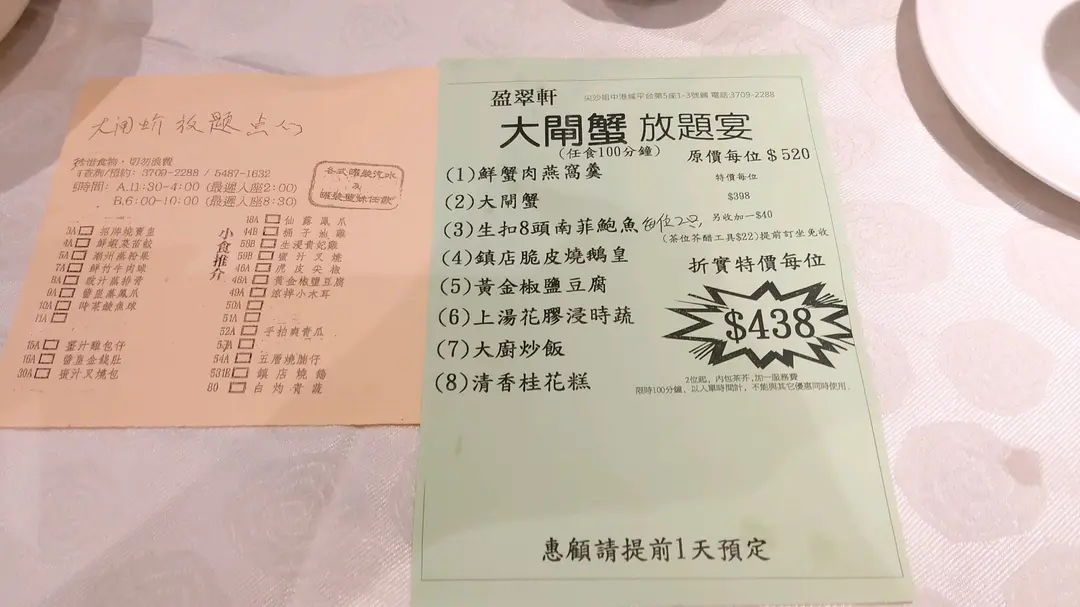 大閘蚧放題点心
珍惜食物，切勿浪費
3709-2288 / 5487-1632
時間：A.11:30-4:00 (最遲入座2:00)
B.6:00-10:00 (最遲入座8:30)
各式罐裝汽水
3A 招牌燒賣皇
4A 鮮蝦菜苗餃
5A 潮州蒸粉果
7A 鮮竹牛肉球
8A 豉汁蒸排骨
9A 醬皇蒸鳳爪
10A 時菜鯪魚球
11A
15A 薑汁雞包仔
16A 醬皇金錢肚
30A 蜜汁叉燒包
小食推介
18A 仙露鳳爪
44B 桶子油雞
58B 生浸貴妃雞
59B 蜜汁叉燒
45A 虎皮尖椒
48A 黃金椒鹽豆腐
49A 涼拌小木耳
50A
51A
52A 手拍爽青瓜
53A
54A 五層燒腩仔
531B 鎮店燒鵝
80 白灼青龍
盈翠軒 尖沙咀中港城平台第5座1-3號鋪 電話:3709-2288
大閘蟹 放題宴
(任食100分鐘)
原價每位 $520
特價每位
$398
另收加一$40
(茶位芥醋工具$22)提前訂坐免收
(1)鮮蟹肉燕窩羹
(2)大閘蟹
(3)生扣8頭南菲鮑魚 每位2只,
(4)鎮店脆皮燒鵝皇
(5)黃金椒鹽豆腐
(6)上湯花膠浸時蔬
(7)大廚炒飯
(8)清香桂花糕
折實特價每位
$438
2位起，內包茶芥,加一服務費
限時100分鐘、以入單時間計，不能與其它優惠同時使用.
惠顧請提前1天預定